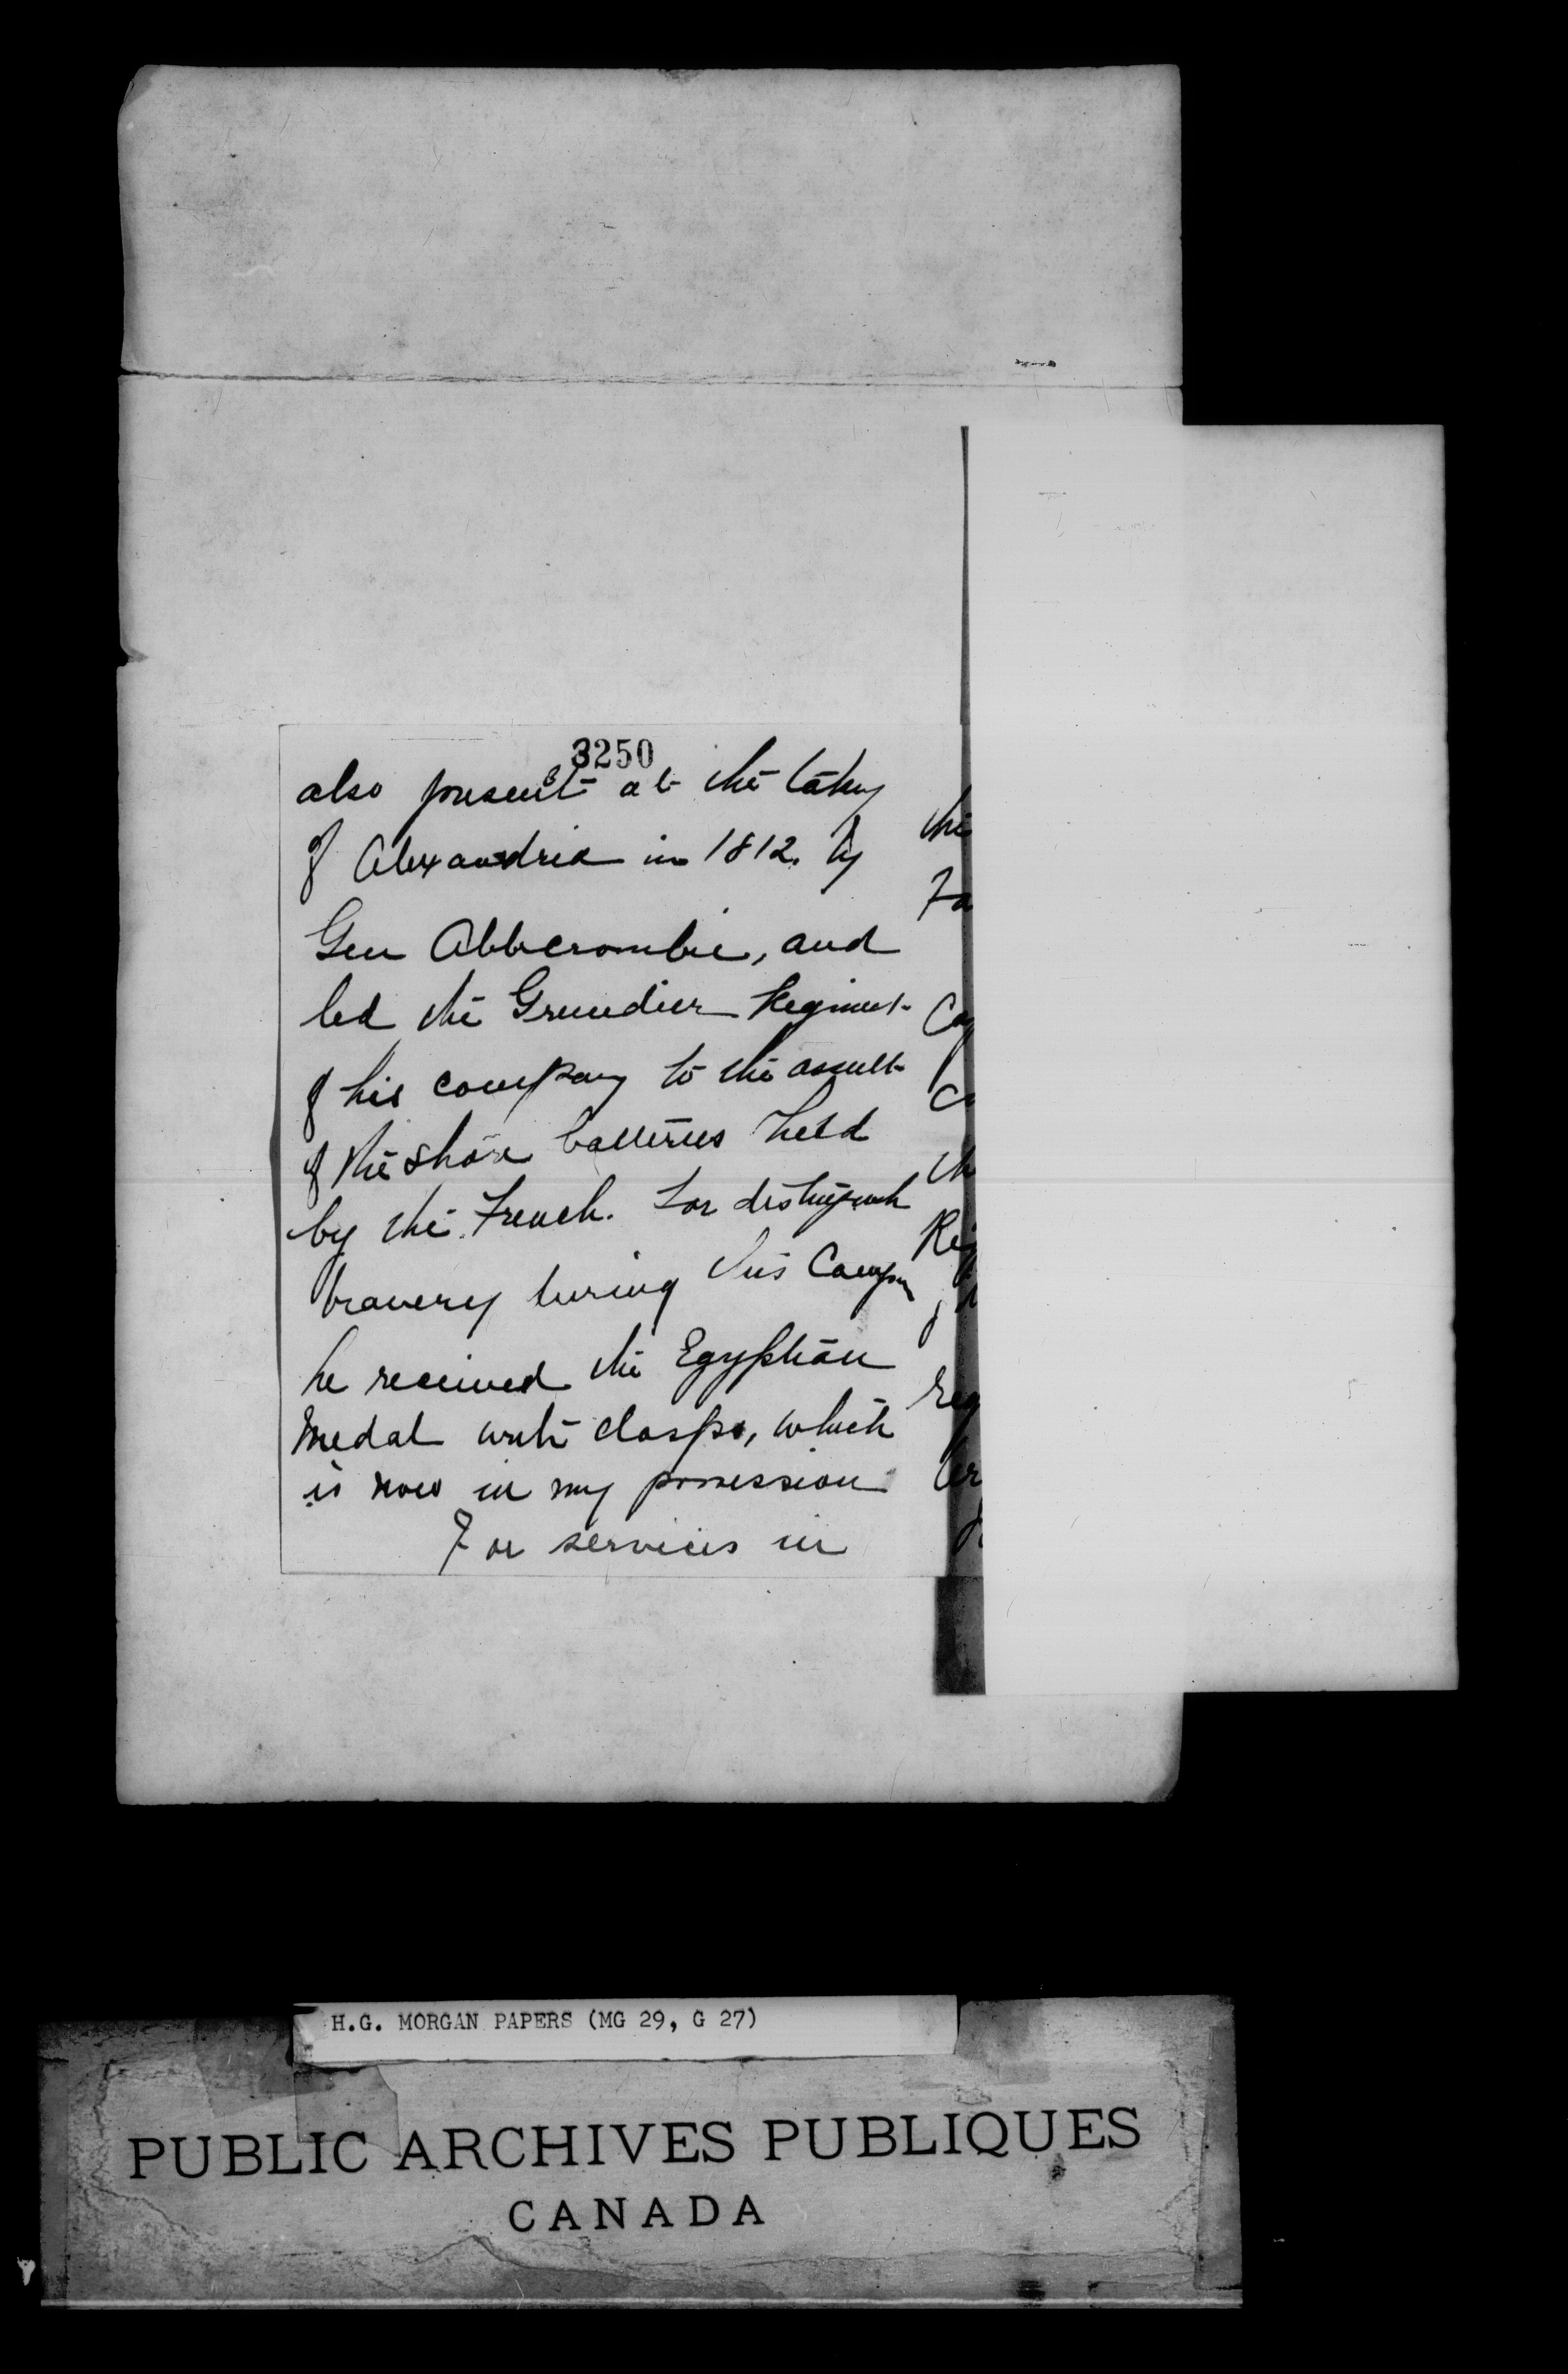 3250
also present at the taking
of Alexandria in 1812. by
Gen Abbercrombie, and
led the Grenadier Regiment
of his company to the assult
of the shore batteries held
by the French. For distinguish
bravery during this Campn
he received the Egyptian
Medal with clasps, which
is now in my possession
For services in
the
Fa
Ca
th
Reg
reg
H.G. MORGAN PAPERS (MG 29, G 27)
PUBLIC ARCHIVES PUBLIQUES
CANADA